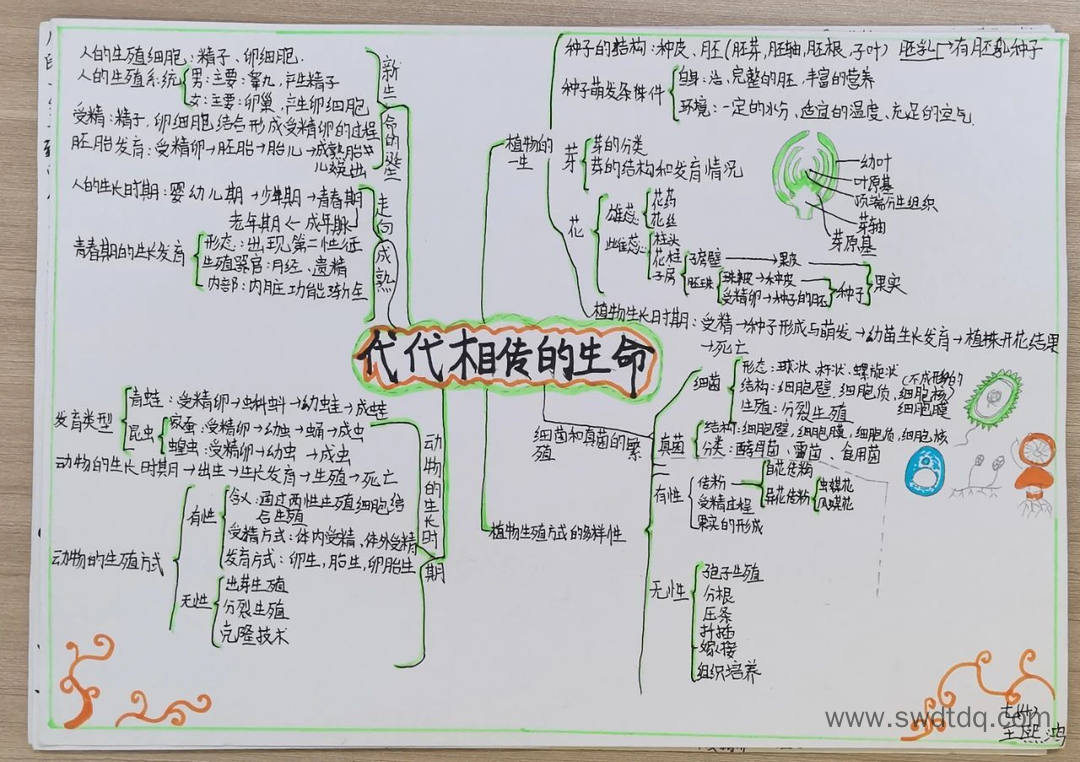 代代相传的生命
新生命的诞生
人的生殖细胞:精子、卵细胞.
人的生殖系统
男:主要:睾丸,产生精子
女:主要:卵巢,产生卵细胞
受精:精子、卵细胞结合形成受精卵的过程
胚胎发育:受精卵→胚胎→胎儿→成熟胎
儿娩出
走向成熟
人的生长时期:婴幼儿期→少年期→青春期
老年期←成年期
青春期的生长发育
形态:出现第二性征
生殖器官:月经、遗精
内部:内脏功能渐全
植物的
一生
种子的结构:种皮、胚(胚芽,胚轴,胚根,子叶) 胚乳→有胚乳种子
种子萌发条件
自身:活、完整的胚,丰富的营养
环境:一定的水分,适宜的温度,充足的空气.
芽
芽的分类
芽的结构和发育情况
幼叶
叶原基
顶端分生组织
芽轴
芽原基
花
雄蕊
花药
花丝
雌蕊
柱头
花柱
子房
子房壁→果皮
胚珠
珠被→种皮
受精卵→种子的胚
种子
果实
植物生长时期:受精→种子形成与萌发→幼苗生长发育→植株开花结果
→死亡
动物的生长时期
发育类型
青蛙:受精卵→蝌蚪→幼蛙→成蛙
昆虫
家蚕:受精卵→幼虫→蛹→成虫
蝗虫:受精卵→幼虫→成虫
动物的生长时期→出生→生长发育→生殖→死亡
动物的生殖方式
有性
含义:通过两性生殖细胞结
合生殖
受精方式:体内受精、体外受精
发育方式:卵生,胎生,卵胎生
无性
出芽生殖
分裂生殖
克隆技术
细菌和真菌的繁
殖
细菌
形态:球状、杆状、螺旋状
结构:细胞壁,细胞质,细胞核
(不成形的
细胞膜
生殖:分裂生殖
真菌
结构:细胞壁,细胞膜,细胞质,细胞核
分类:酵母菌、霉菌、食用菌
植物生殖方式的多样性
有性
传粉
自花传粉
异花传粉
虫媒花
风媒花
受精过程
果实的形成
无性
孢子生殖
分根
压条
扦插
嫁接
组织培养
www.swdtdq.com
王熙鸿